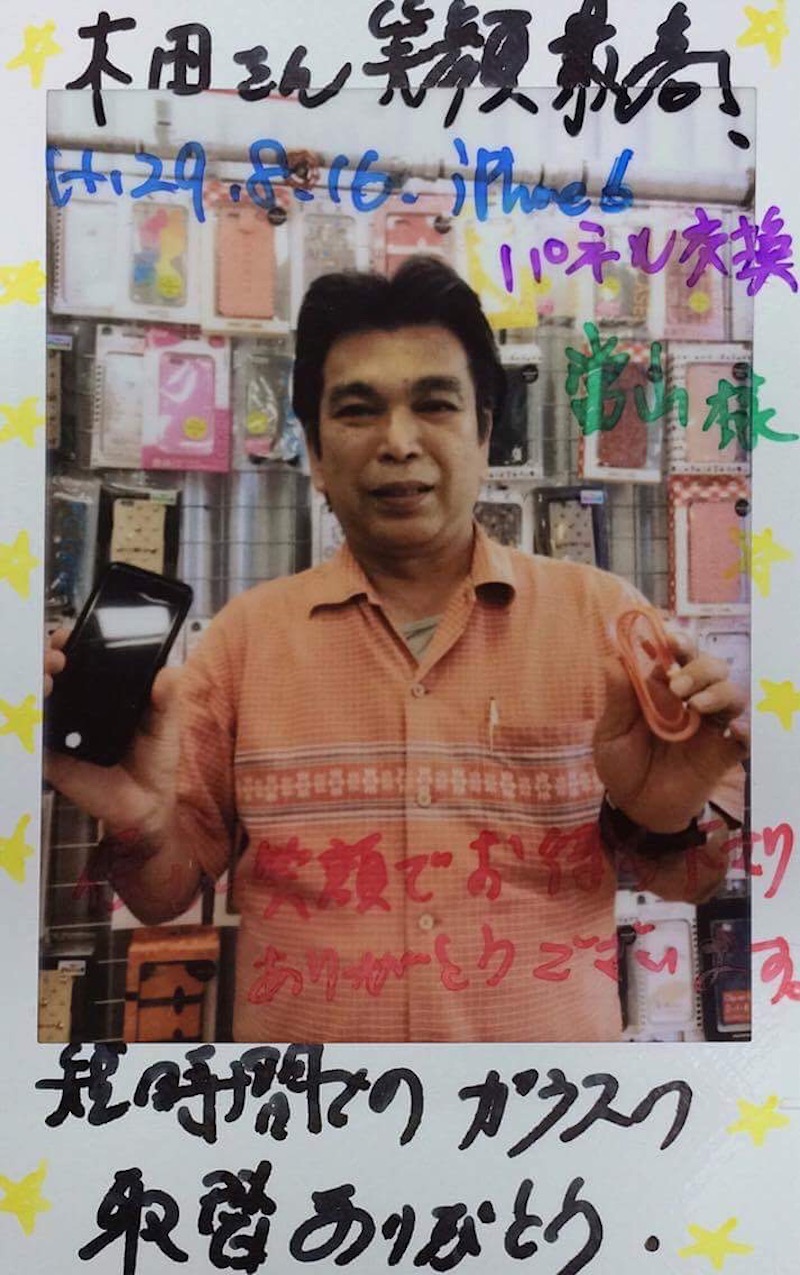 木田さん笑顔最高!
H.29.8.16. iPhone6
パネル交換
當山様
笑顔でお待ち下さり
ありがとうございます。
短時間でのガラスの
取替ありがとう.